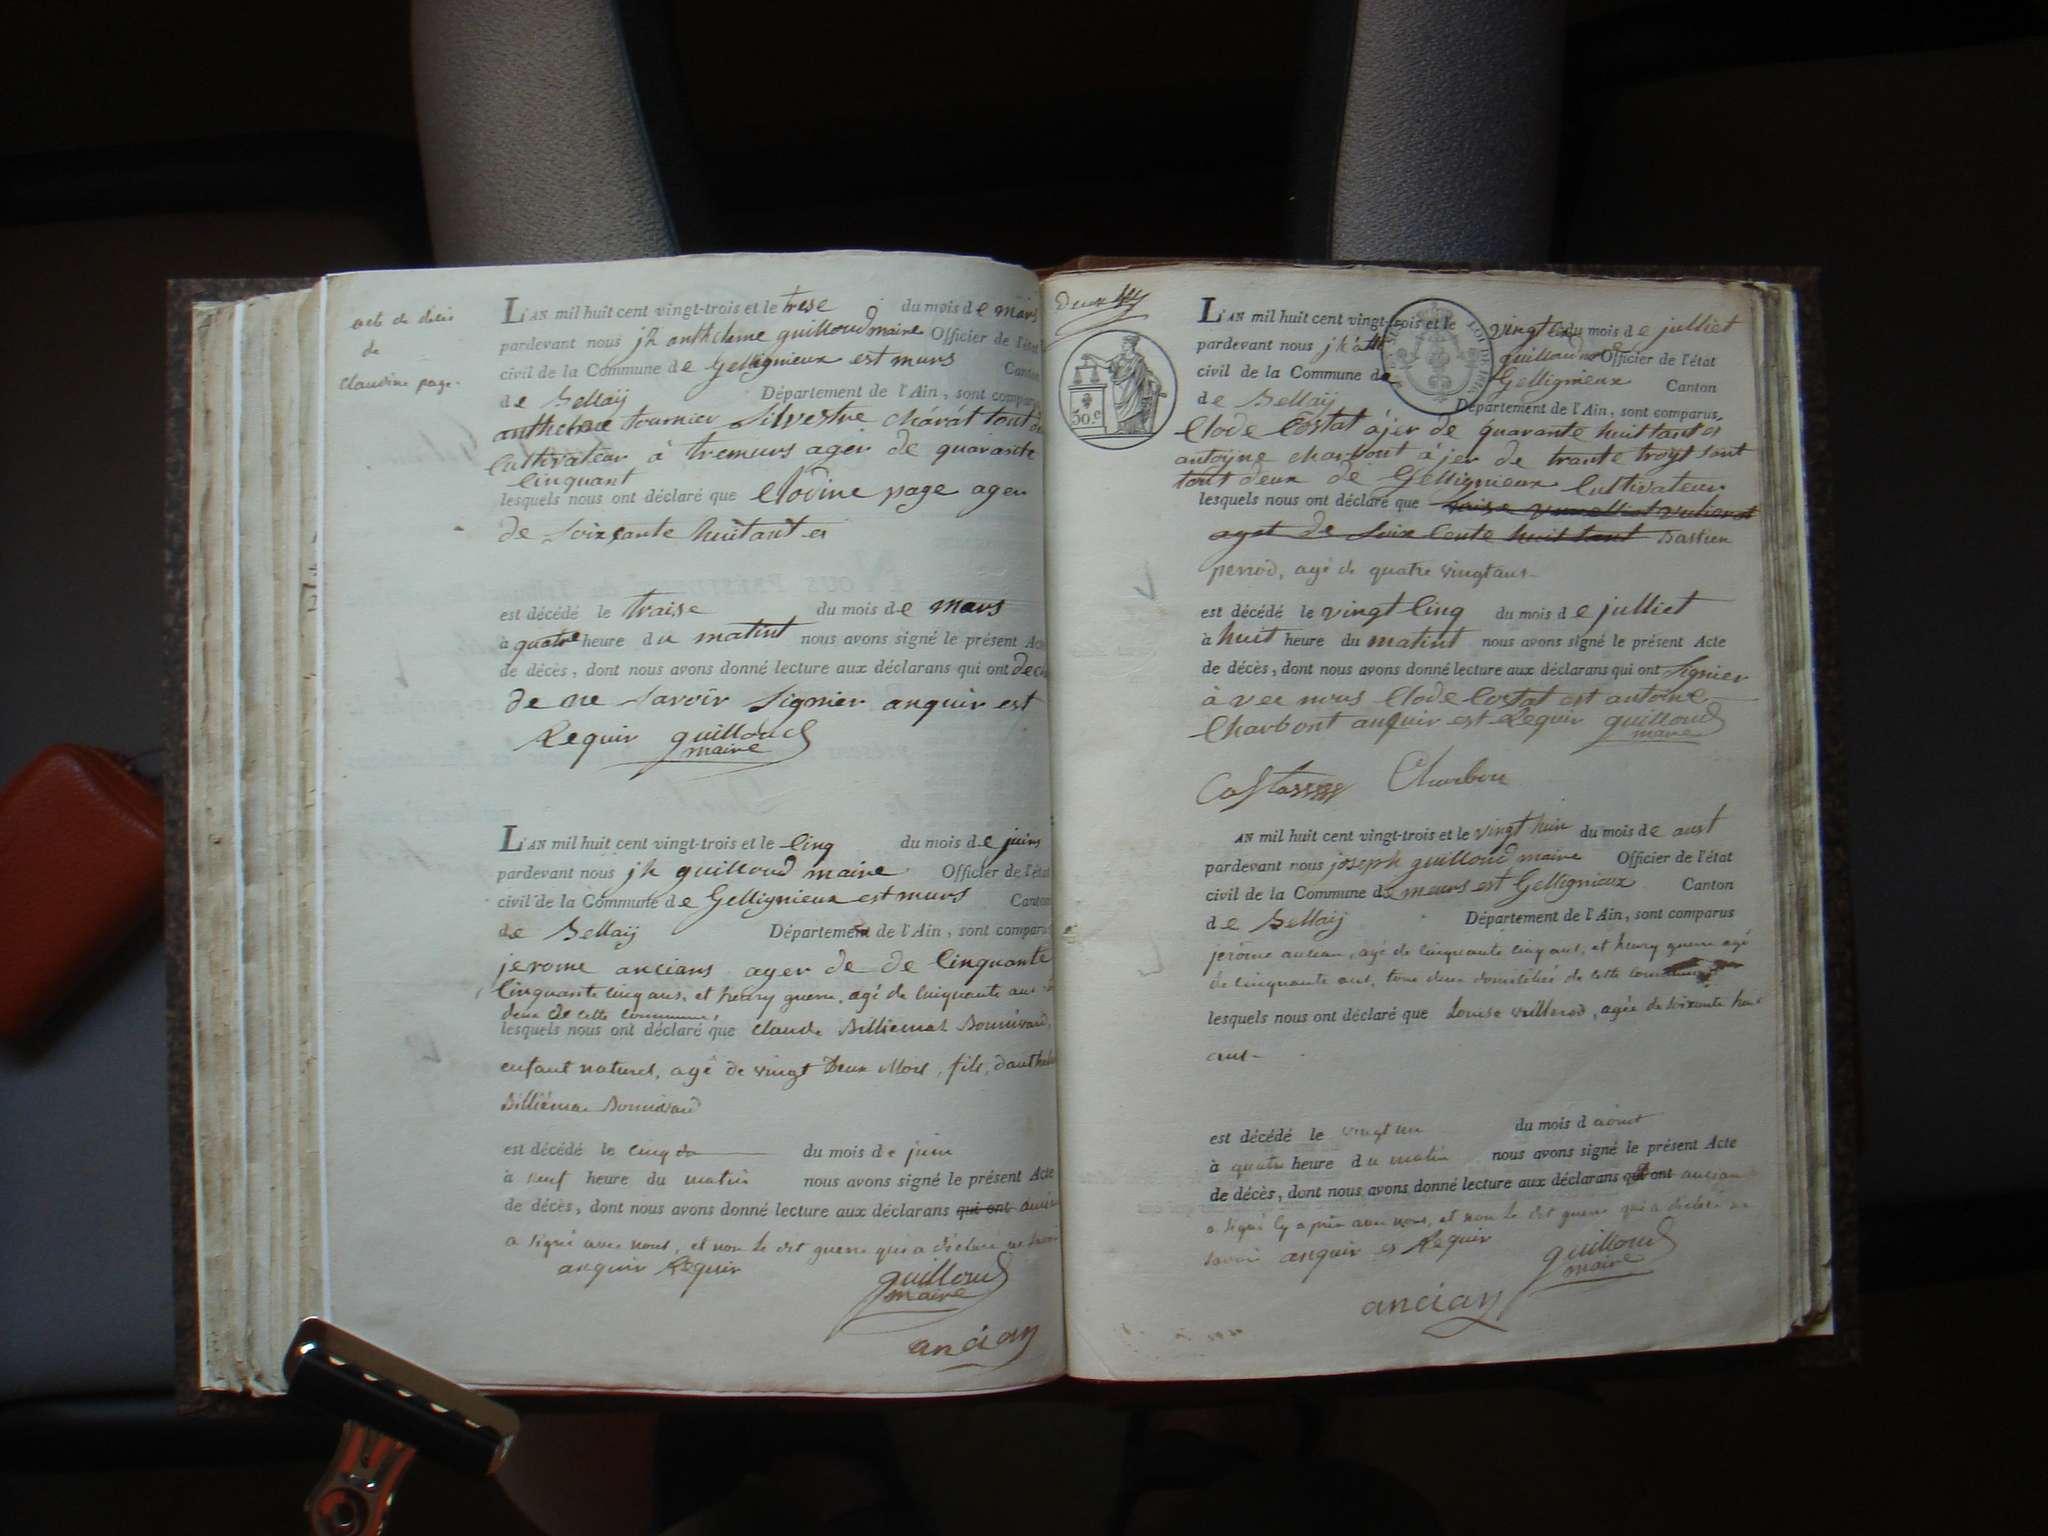 acte de décès
de
Claudine page.
L'AN mil huit cent vingt-trois et le trese du mois de mars
pardevant nous jh anthelme guilloud maire Officier de l'état
civil de la Commune de Gellignieux est murs Canton
de Bellaÿ Département de l'Ain, sont comparus
anthelme tournier Silvestre chárát tout
Cultivateur à tremeurs ager de quarante
Cinquant
lesquels nous ont déclaré que Clodine page ager
de Soixcante huitant
est décédé le traise du mois de mars
à quatre heure du matint nous avons signé le présent Acte
de décès, dont nous avons donné lecture aux déclarans qui ont
de ne savoir signier anquir est
Requir guilloud
maire
L'AN mil huit cent vingt-trois et le Cinq du mois de juin
pardevant nous jh guilloud maire Officier de l'état
civil de la Commune de Gellignieux est murs Canton
de Bellaÿ Département de l'Ain, sont comparus
jerome ancians ager de de Cinquante
Cinquante cinq ans, et henry guerre, agé de cinquante ans
deux de cette commune,
lesquels nous ont déclaré que Claude Billiemaz Bonnivard,
enfant naturel, agé de vingt Deux Mois, fils,
Billiémaz Bonnivard
est décédé le cinq du mois de juin
à neuf heure du matin nous avons signé le présent Acte
de décès, dont nous avons donné lecture aux déclarans qui ont ancian
a signé avec nous, et non le dit guerre qui a déclaré ne savoir
anquir Requir
guilloud
maire
ancian
deux
30.c
L'AN mil huit cent vingt-trois et le vingt du mois de julliet
pardevant nous jh guilloud Officier de l'état
civil de la Commune de Gellignieux Canton
de Bellaÿ Département de l'Ain, sont comparus
Clode Costat àjer de quarante huit tant
antoyne charbont àjer de trante troyt sont
tout deux de Gellignieux Cultivateur
lesquels nous ont déclaré que
aget de Soix Cente huit tant Bastien
perrod, agé de quatre vingt ans
est décédé le vingt Cinq du mois de julliet
à huit heure du matint nous avons signé le présent Acte
de décès, dont nous avons donné lecture aux déclarans qui ont signier
à vec nous Clode Costat est antoine
Charbont anquir est Requir guilloud
maire
Charbon
AN mil huit cent vingt-trois et le vingt huis du mois de aust
pardevant nous joseph guilloud maire Officier de l'état
civil de la Commune de meurs est Gellignieux Canton
de Bellaÿ Département de l'Ain, sont comparus
jerôme ancian, agé de cinquante cinq ans, et henry guerre agé
de cinquante ans, tous deux domiciliés de cette commune
lesquels nous ont déclaré que Louise vullierod, agée de soixante huit
ans
est décédé le vingt un du mois d'aoust
à quatre heure du matin nous avons signé le présent Acte
de décès, dont nous avons donné lecture aux déclarans qui ont ancian
a signé cy après avec nous, et non le dit guerre qui a déclaré ne
savoir anquir es Requir guilloud
maire
ancian